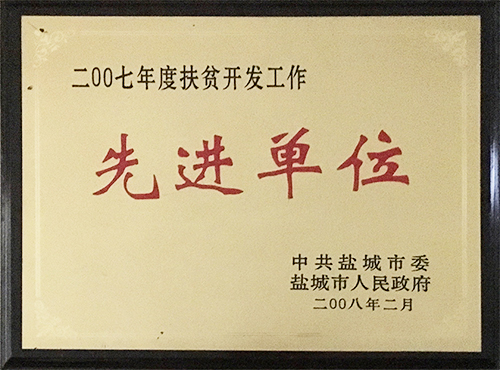 二00七年度扶贫开发工作
先进单位
中共盐城市委
盐城市人民政府
二00八年二月